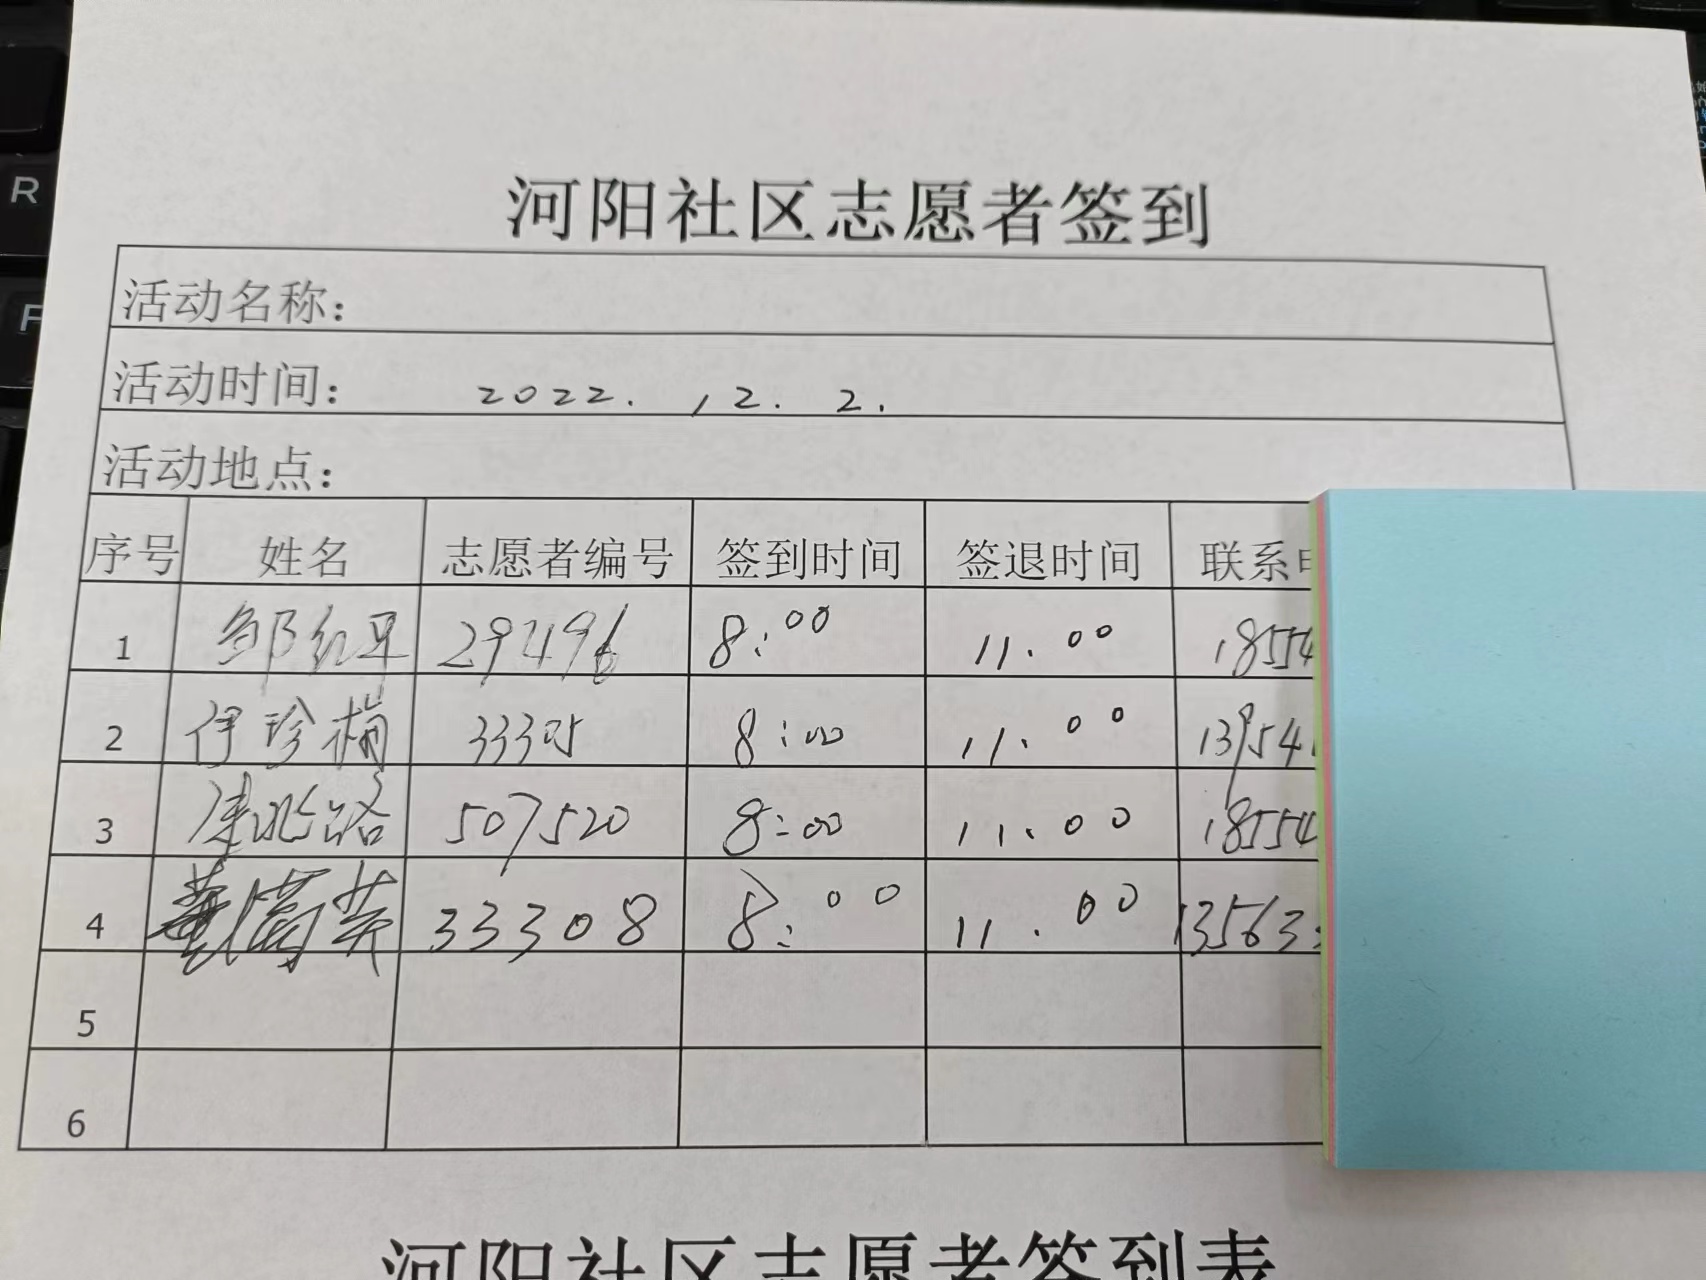 河阳社区志愿者签到
活动名称：
活动时间： 2022. 12. 2.
活动地点：
序号 姓名 志愿者编号 签到时间 签退时间 联系
1 邹红早 29496 8:00 11.00 18554
2 伊珍楠 8:00 11.00 13954
3 507520 8:00 11.00 18554
4 董英 33308 8:00 11.00 13563
5
6
河阳社区志愿者签到表
R
F